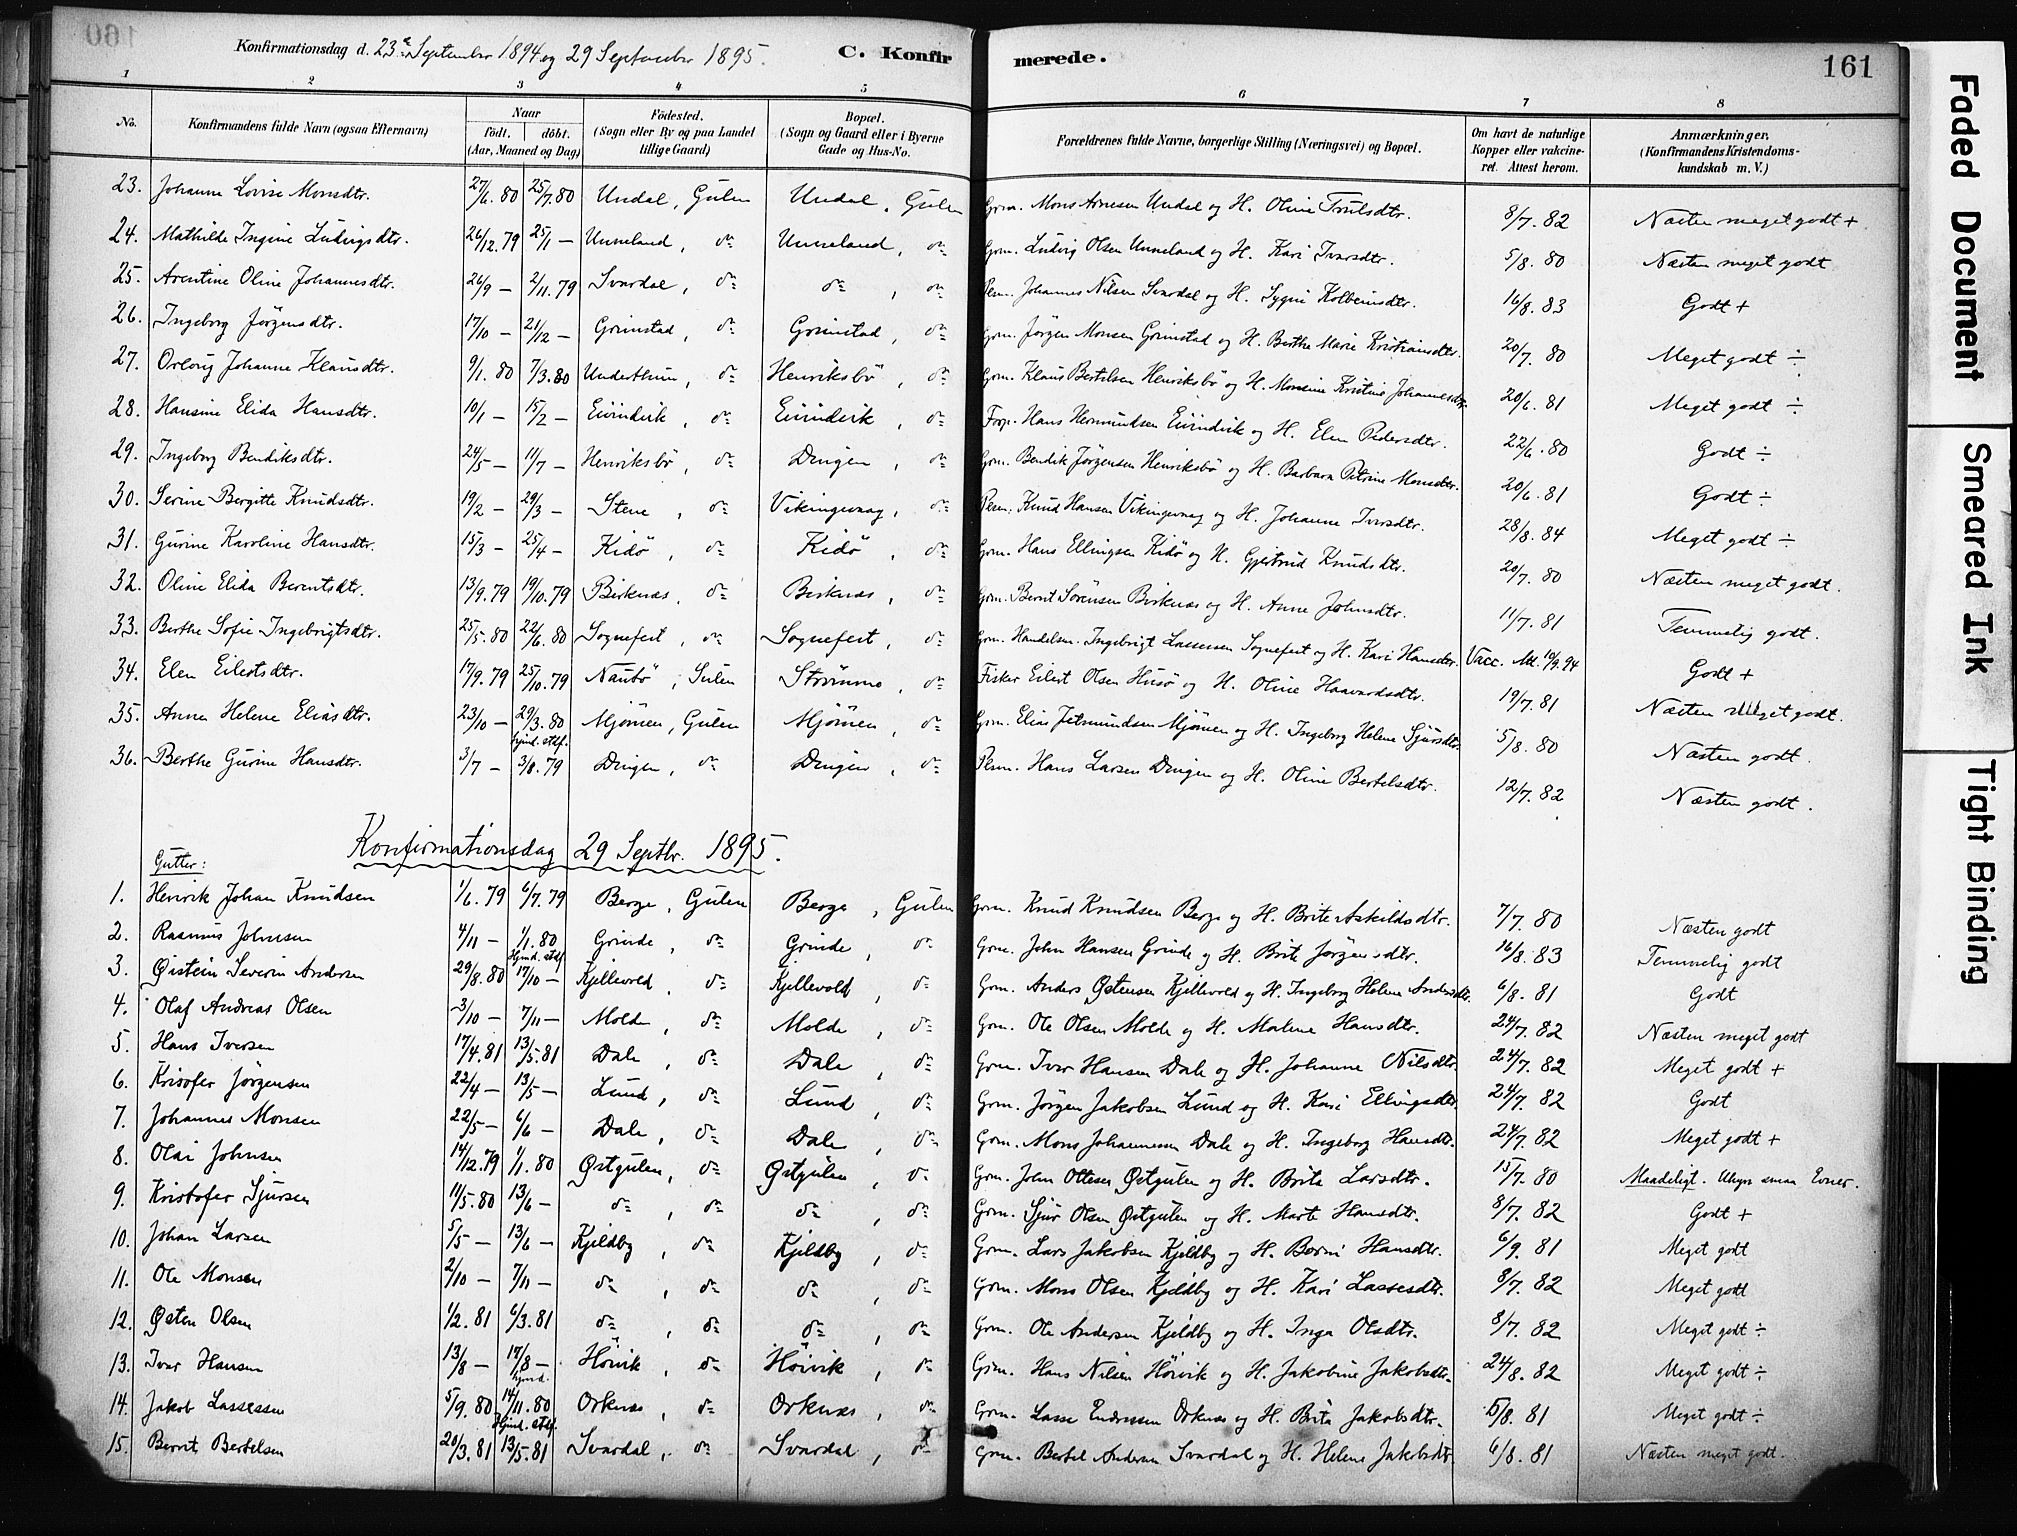 Konfirmationsdag d. 23de September 1894 og 29 September 1895. C. Konfirmerede. 161
1 2 3 4 5 6 7 8
No. Konfirmandens fulde Navn (ogsaa Efternavn) Naar født. døbt. (Aar, Maaned og Dag) Fødested. (Sogn eller By og paa Landet tillige Gaard) Bopæl. (Sogn og Gaard eller i Byerne Gade og Hus-No. Forældrenes fulde Navne, borgerlige Stilling (Næringsvei) og Bopæl. Om havt de naturlige Kopper eller vakcineret. Attest herom. Anmærkninger. (Konfirmandens Kristendomskundskab m. V.)
23. Johanne Lovise Monsdtr. 27/6. 80 25/7. 80 Undal, Gulen Undal, Gulen Grm. Mons Arnesen Undal og H. Oline Trulsdtr. 8/7. 82 Næsten meget godt +
24. Mathilde Ingine Ludvigsdtr. 26/12. 79 25/1 — Unneland, do Unneland, do Grm. Ludvig Olsen Unneland og H. Kari Ivarsdtr. 5/8. 80 Næsten meget godt
25. Arentine Oline Johannesdtr. 26/9 — 2/11. 79 Svardal, do do, do Johannes Nilsen Svardal og H. Sygni Kolbeinsdtr. 16/8. 83 Godt +
26. Ingeborg Jørgensdtr. 17/10 — 21/12 — Grimstad, do Grimstad, do Grm. Jørgen Monsen Grimstad og H. Berthe Marie Kristiansdtr. 20/7. 80 Meget godt ÷
27. Orloug Johanne Klausdtr. 9/1. 80 7/3. 80 Underthun, do Henriksbø, do Grm. Klaus Bertilsen Henriksbø og H. Monsine Kristine Johannesdtr. 20/6. 81 Meget godt ÷
28. Hansine Elida Hansdtr. 10/1 — 15/2 — Eivindvik, do Eivindvik, do Forp. Hans Hermundsen Eivindvik og H. Elen Pedersdtr. 22/6. 80 Godt ÷
29. Ingeborg Bendiksdtr. 24/5 — 11/7 — Henriksbø, do Dingen, do Grm. Bendik Jørgensen Henriksbø og H. Barbara Petrine Monsdtr. 20/6. 81 Godt ÷
30. Serine Bergitte Knudsdtr. 19/2 — 29/3 — Stene, do Vikingevaag, do Knud Hansen Vikingevaag og H. Johanne Ivarsdtr. 28/8. 84 Meget godt ÷
31. Gurine Karoline Hansdtr. 15/3 — 25/4 — Kidø, do Kidø, do Grm. Hans Ellingsen Kidø og H. Gjertrud Knudsdtr. 20/7. 80 Næsten meget godt.
32. Oline Elida Berentsdtr. 13/9. 79 19/10. 79 Birknæs, do Birknæs, do Grm. Bernt Sørensen Birknæs og H. Anne Johnsdtr. 11/7. 81 Temmelig godt.
33. Berthe Sofie Ingebrigtsdtr. 25/5. 80 22/6. 80 Sognefest, do Sognefest, do Grm. Handelsm. Ingebrigt Lassesen Sognefest og H. Kari Hansdtr. Vacc. Att. 10/9. 94 Godt +
34. Elen Eilertsdtr. 17/9. 79 25/10. 79 Naubø, Sulen Strømme, do Fisker Eilert Olsen Husø og H. Oline Haavardsdtr. 19/7. 81 Næsten meget godt.
35. Anna Helene Eliasdtr. 23/10 — 29/3. 80 hjmd. stdf. Mjømen, Gulen Mjømen, do Grm. Elias Jetmundsen Mjømen og H. Ingeborg Helene Sjursdtr. 5/8. 80 Næsten godt.
36. Berthe Gurine Hansdtr. 3/7 — 3/8. 79 Dingen, do Dingen, do Hans Larsen Dingen og H. Oline Bertelsdtr. 12/7. 82 Næsten godt.
Konfirmationsdag 29 Septbr. 1895.
Gutter:
1. Henrik Johan Knudsen 1/6. 79 6/7. 79 Berge, Gulen Berge, Gulen Grm. Knud Knudsen Berge og H. Brite Askildsdtr. 7/7. 80 Næsten godt
2. Rasmus Johnsen 4/11 — 1/1. 80 Hjmd. stdf. Grinde, do Grinde, do Grm. John Hansen Grinde og H. Brite Jørgensdtr. 16/8. 83 Temmelig godt
3. Øistein Severin Andersen 29/8. 80 17/10 — Kjellevold, do Kjellevold, do Grm. Anders Østensen Kjellevold og H. Ingeborg Helene Andersdtr. 6/8. 81 Godt
4. Olaf Andreas Olsen 3/10 — 7/11 — Molde, do Molde, do Grm. Ole Olsen Molde og H. Malene Hansdtr. 24/7. 82 Næsten meget godt
5. Hans Iversen 17/4. 81 13/5. 81 Dale, do Dale, do Grm. Ivar Hansen Dale og H. Johanne Nilsdtr. 24/7. 82 Meget godt +
6. Krisofer Jørgensen 22/4 — 13/5 — Lund, do Lund, do Grm. Jørgen Jakobsen Lund og H. Kari Ellingsdtr. 24/7. 82 Godt
7. Johannes Monsen 22/5 — 6/6 — Dale, do Dale, do Grm. Mons Johannesen Dale og H. Ingeborg Hansdtr. 24/7. 82 Meget godt +
8. Olai Johnsen 14/12. 79 1/1. 80 Østgulen, do Østgulen, do Grm. John Ottesen Østgulen og H. Brita Larsdtr. 15/7. 80 Maadeligt. Uhyre smaa Evner.
9. Kristofer Sjursen 11/5. 80 13/6 — do, do do, do Grm. Sjur Olsen Østgulen og H. Marte Hansdtr. 8/7. 82 Godt +
10. Johan Larsen 5/5 — 13/6 — Kjeldby, do Kjeldby, do Grm. Lars Jakobsen Kjeldby og H. Borni Hansdtr. 6/9. 81 Meget godt
11. Ole Monsen 2/10 — 7/11 — do, do do, do Grm. Mons Olsen Kjeldby og H. Kari Lassesdtr. 8/7. 82 Meget godt
12. Østen Olsen 1/2. 81 6/3. 81 do, do do, do Grm. Ole Andersen Kjeldby og H. Inga Olsdtr. 8/7. 82 Meget godt ÷
13. Ivar Hansen 13/8 — 17/8 — hjmd. Høivik, do Høivik, do Grm. Hans Nilsen Høivik og H. Jakobine Jakobsdtr. 24/8. 82 Meget godt ÷
14. Jakob Lassesen 5/9. 80 14/11. 80 Hjmd. stdf. Orknæs, do Orknæs, do Grm. Lasse Endresen Orknæs og H. Brita Jakobsdtr. 5/8. 81 Meget godt ÷
15. Bernt Bertelsen 20/3. 81 13/5. 81 Svardal, do Svardal, do Grm. Bertel Andersen Svardal og H. Helene Jakobsdtr. 6/8. 81 Næsten meget godt.
Faded Document
Smeared Ink
Tight Binding